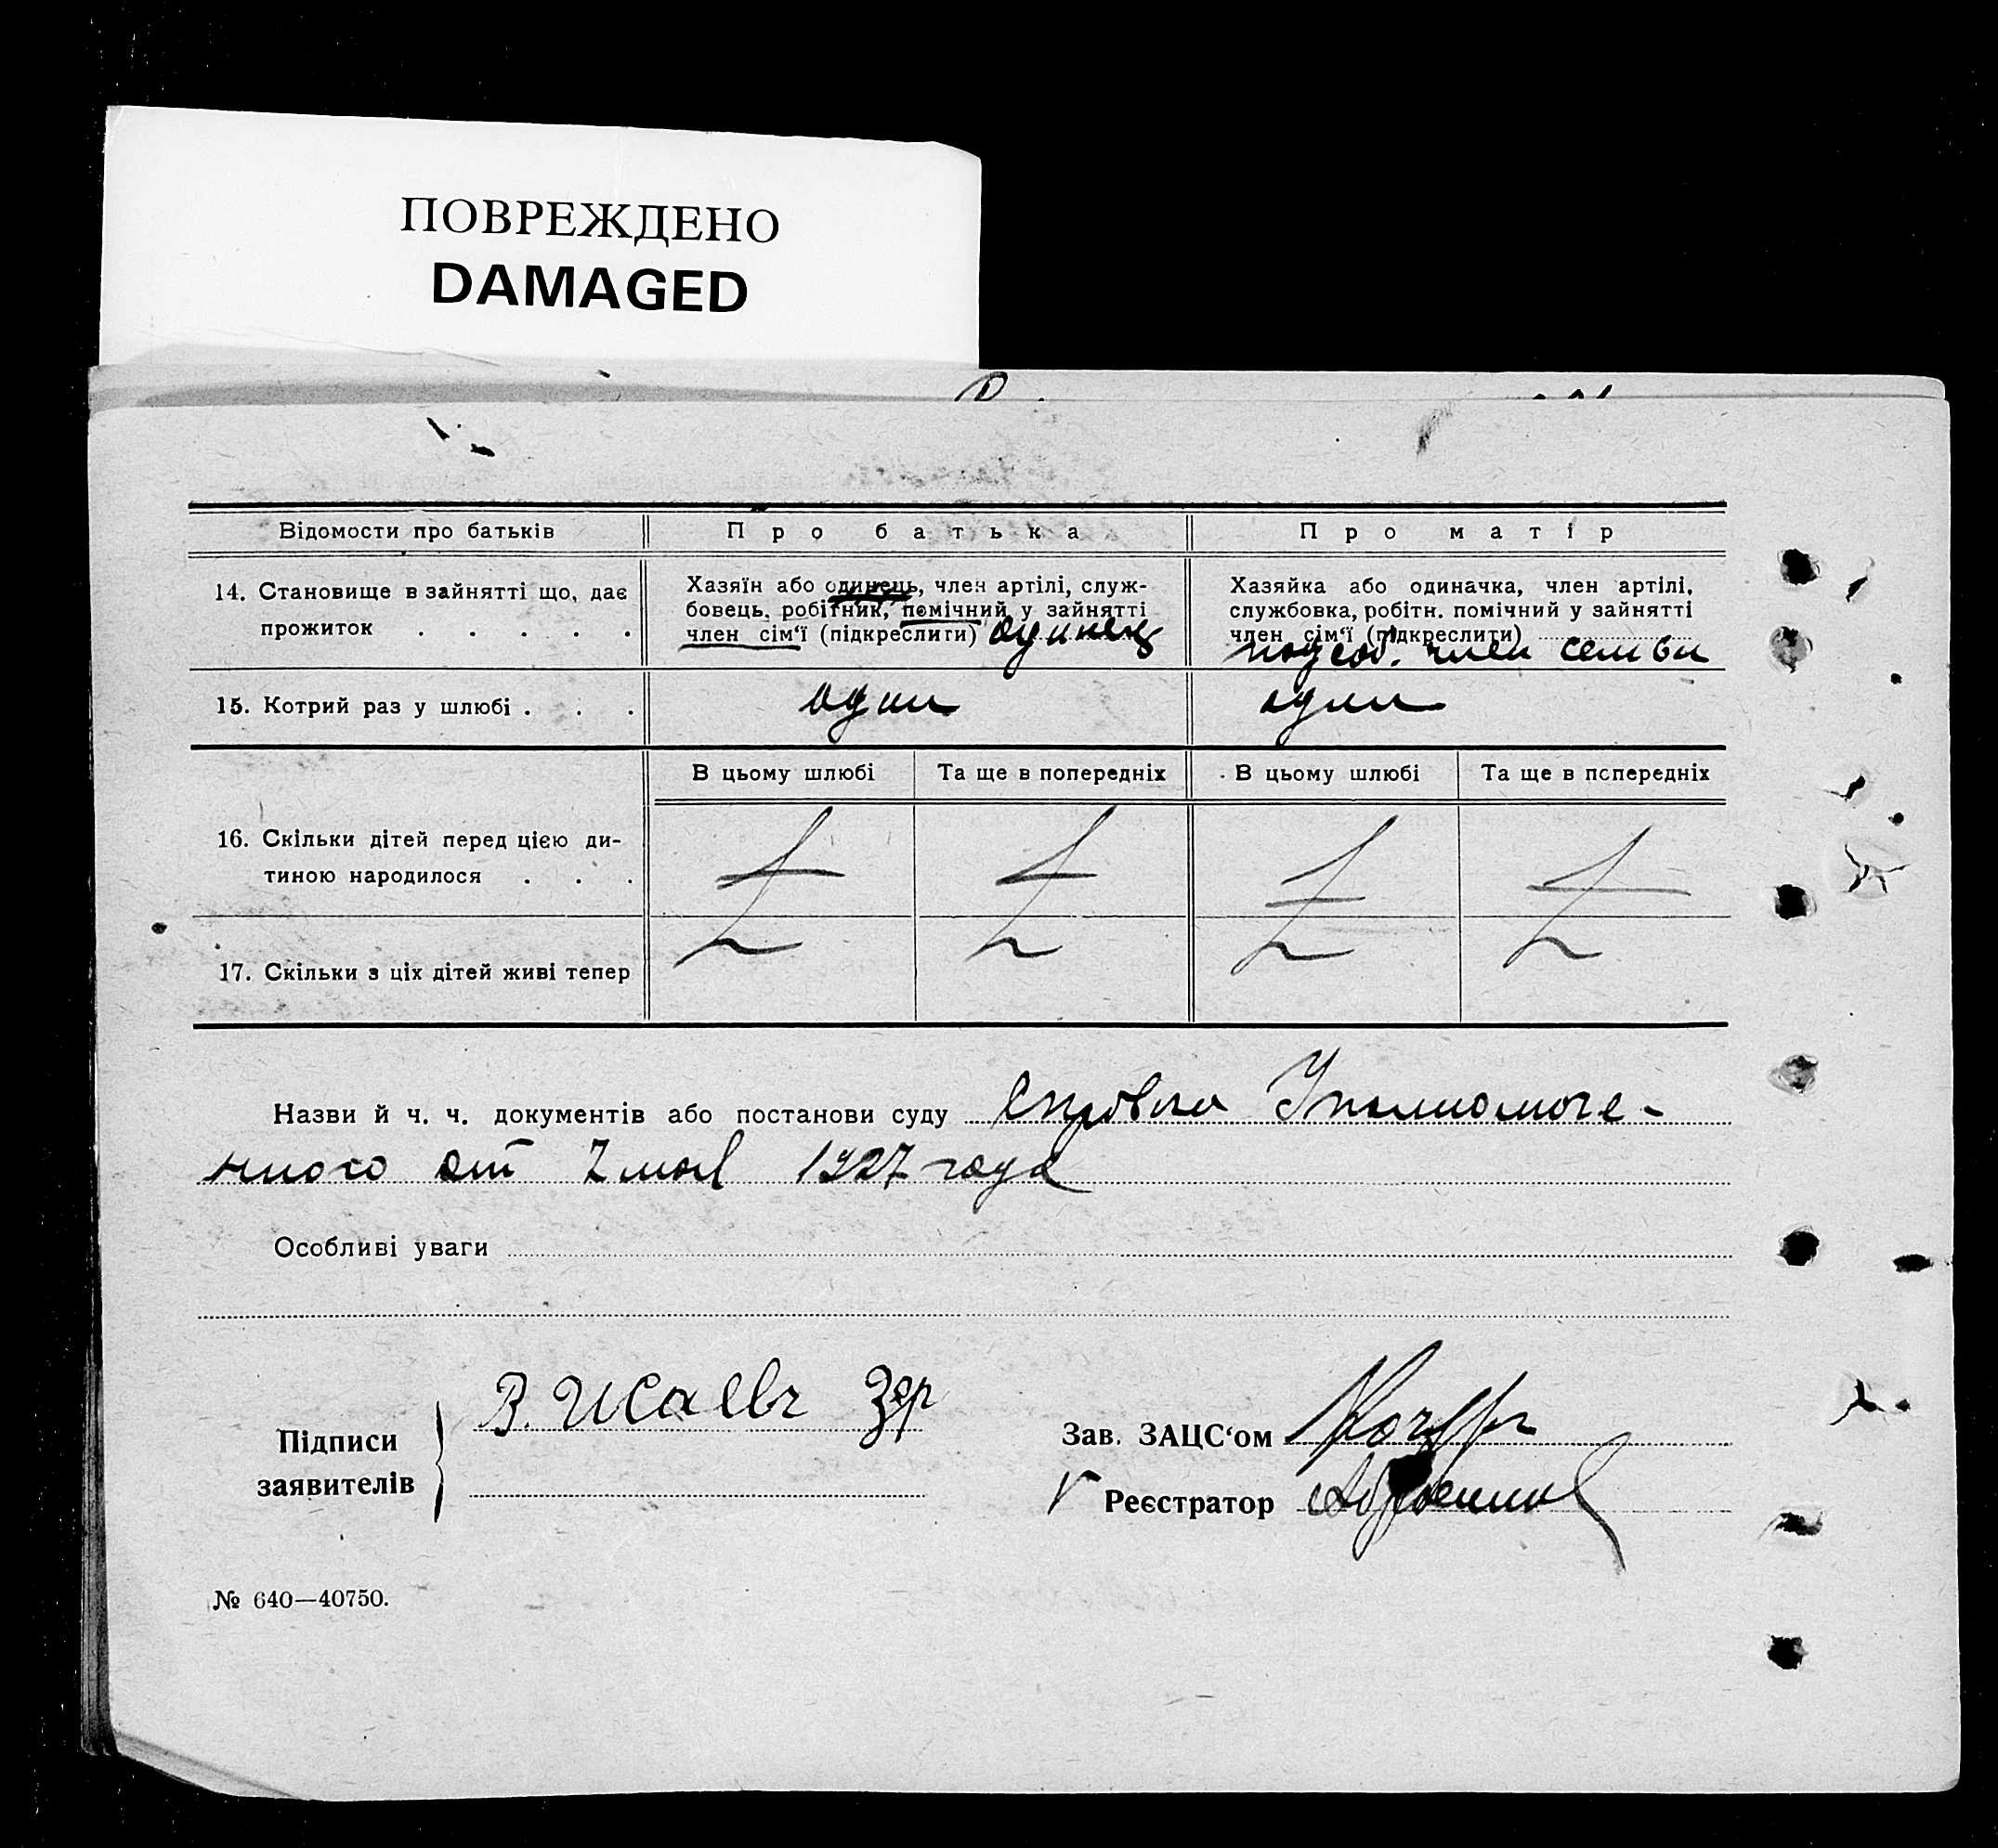 ПОВРЕЖДЕНО
DAMAGED
Відомости про батьків
Про батька
Про матір
14. Становище в зайнятті що, дає
прожиток . . . . .
Хазяїн або одинець, член артілі, служ-
бовець, робітник, помічний у зайнятті
член сім'ї (підкреслити) одинец
Хазяйка або одиначка, член артілі,
службовка, робітн. помічний у зайнятті
член сім'ї (підкреслити)
подсоб. член семьи
15. Котрий раз у шлюбі . . .
один
один
В цьому шлюбі
Та ще в попередніх
В цьому шлюбі
Та ще в попередніх
16. Скільки дітей перед цією ди-
тиною народилося . . .
17. Скільки з ціх дітей живі тепер
Назви й ч. ч. документів або постанови суду Справка Уполномоче-
нного от 7 мая 1927 года
Особливі уваги
Підписи
заявителів
В. Исаевъ
Зав. ЗАЦС'ом
Реєстратор
№ 640—40750.